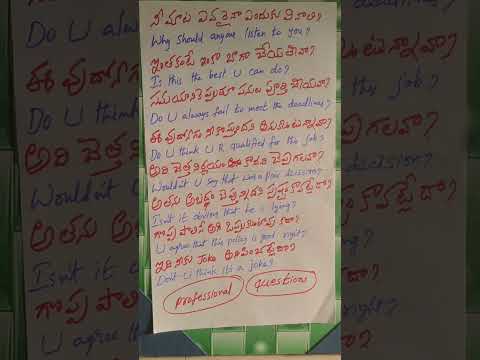 నీ మాట ఎవరైనా ఎందుకు వినాలి?
Why should anyone listen to you?
ఇంతకంటే ఇంకా బాగా చేయలేవా?
Is this the best U can do?
సమయానికి ఎప్పుడూ పనులు పూర్తి చేయవా?
Do U always fail to meet the deadlines?
ఈ వుద్యోగం నీకొస్తుందని అనుకుంటున్నావా?
Do U think U R qualified for the job?
అది చెత్త నిర్ణయం కాదని చెప్పగలవా?
Wouldn't U say that was a poor decision?
అతను అబద్ధం చెప్తున్నాడని స్పష్టం కావట్లేదా?
Isn't it obvious that he is lying?
గొప్ప పాలసీ అని ఒప్పుకుంటావు కదా?
U agree that this policy is good, right?
ఇది నీకు Joke అనిపించట్లేదా?
Don't U think its a joke?
professional questions